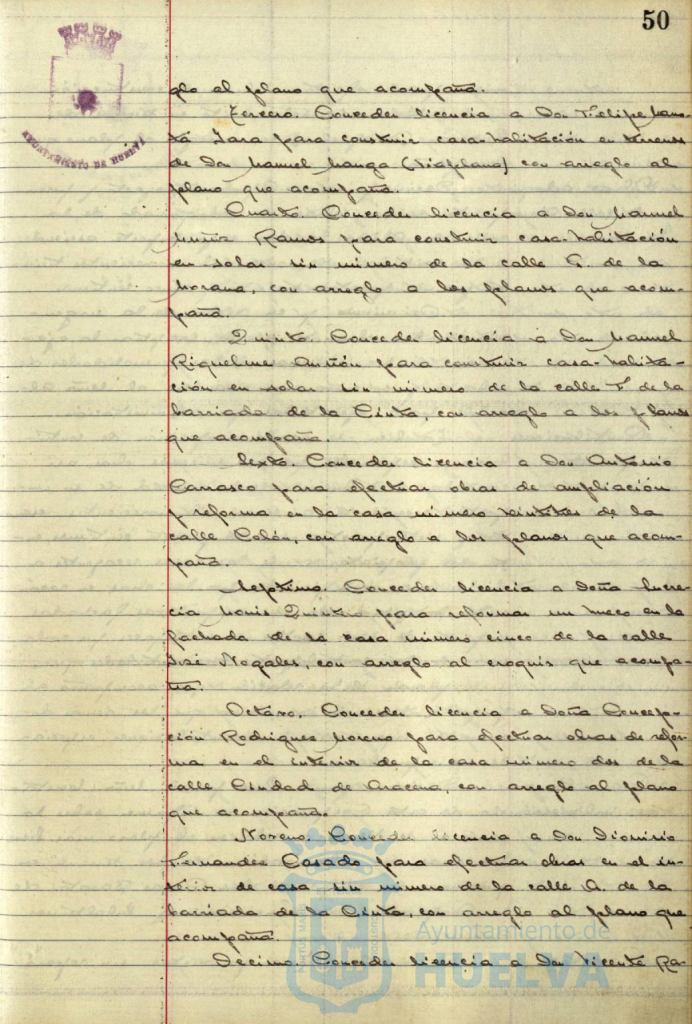 50
AYUNTAMIENTO DE HUELVA
glo al plano que acompaña.
Tercero. Conceder licencia a Don Felipe
Jara para construir casa-habitación en terrenos
de Don Manuel Manga con arreglo al
plano que acompaña.
Cuarto. Conceder licencia a Don Manuel
Muñiz Ramos para construir casa-habitación
en solar sin número de la calle G. de la
Morana, con arreglo a los planos que acom-
paña.
Quinto. Conceder licencia a Don Manuel
Riquelme para construir casa-habita-
ción en solar sin número de la calle F. de la
barriada de la Cinta, con arreglo a los planos
que acompaña.
Sexto. Conceder licencia a Don Antonio
Carrasco para efectuar obras de ampliación
y reforma en la casa número veintitres de la
calle Colón, con arreglo a los planos que acom-
paña.
Septimo. Conceder licencia a Doña Lucre-
cia Quintero para reformar un hueco en la
fachada de la casa número cinco de la calle
José Nogales, con arreglo al croquis que acompa-
ña.
Octavo. Conceder licencia a Doña Concep-
ción Rodriguez Moreno para efectuar obras de refor-
ma en el interior de la casa número dos de la
calle Ciudad de Aracena, con arreglo al plano
que acompaña.
Noveno. Conceder licencia a Don Dionisio
Fernandez Casado para efectuar obras en el in-
terior de casa sin número de la calle A. de la
barriada de la Cinta, con arreglo al plano que
acompaña.
Decimo. Conceder licencia a Don Vicente Ra-
Ayuntamiento de
HUELVA